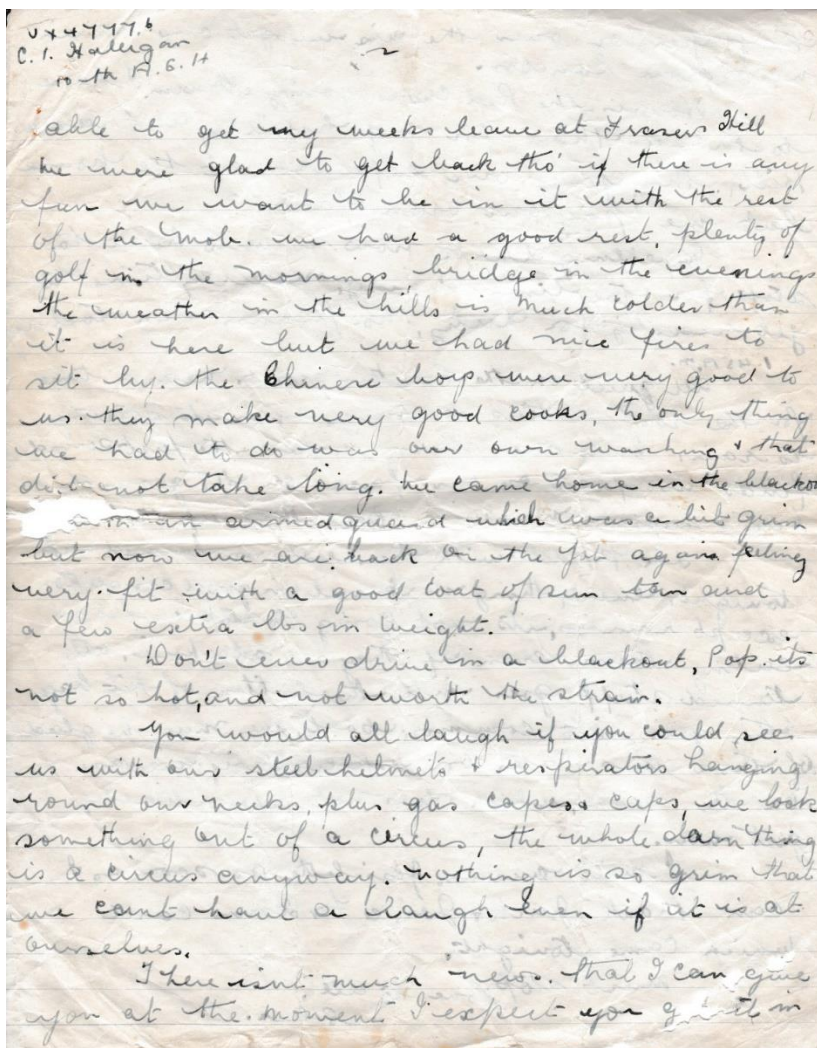 VX47776
C. I. Halligan
10th A.G.H
2
able to get my weeks leave at Frasers Hill
we were glad to get back tho' if there is any
fun we want to be in it with the rest
of the mob. we had a good rest, plenty of
golf in the mornings, bridge in the evenings
the weather in the hills is much colder than
it is here but we had nice fires to
sit by. the Chinese boys were very good to
us. they make very good cooks, the only thing
we had to do was our own washing & that
did not take long. We came home in the blackout
with an armed guard which was a bit grim
but now we are back on the job again feeling
very fit with a good coat of sun tan and
a few extra lbs in weight.
Don't ever drive in a blackout, Pop. its
not so hot, and not worth the strain.
You would all laugh if you could see
us with our steel helmets & respirators hanging
round our necks, plus gas capes & caps, we look
something out of a circus, the whole darn thing
is a circus anyway. nothing is so grim that
we cant have a laugh even if it is at
ourselves.
There isnt much news. that I can give
you at the moment I expect you get it in